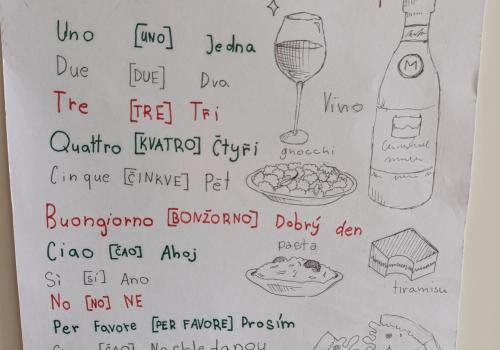 Uno [UNO] Jedna
Due [DUE] Dva
Tre [TRE] Tři
Víno
M
Quattro [KVATRO] Čtyři
gnocchi
Cinque [ČINKVE] Pět
Buongiorno [BONŽORNO] Dobrý den
Ciao [ČAO] Ahoj
pasta
Sì [SÍ] Ano
tiramisu
No [NO] NE
Per Favore [PER FAVORE] Prosím
[ČAO] Nashledanou